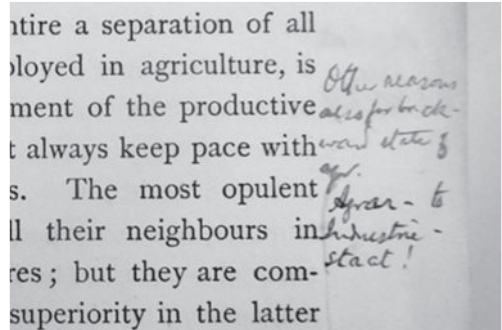 ntire a separation of all
ployed in agriculture, is
ment of the productive
t always keep pace with
s. The most opulent
ll their neighbours in
res; but they are com-
superiority in the latter
Other reasons
also for back-
ward state of
agr.
Agrar- to
Industrie-
staat!